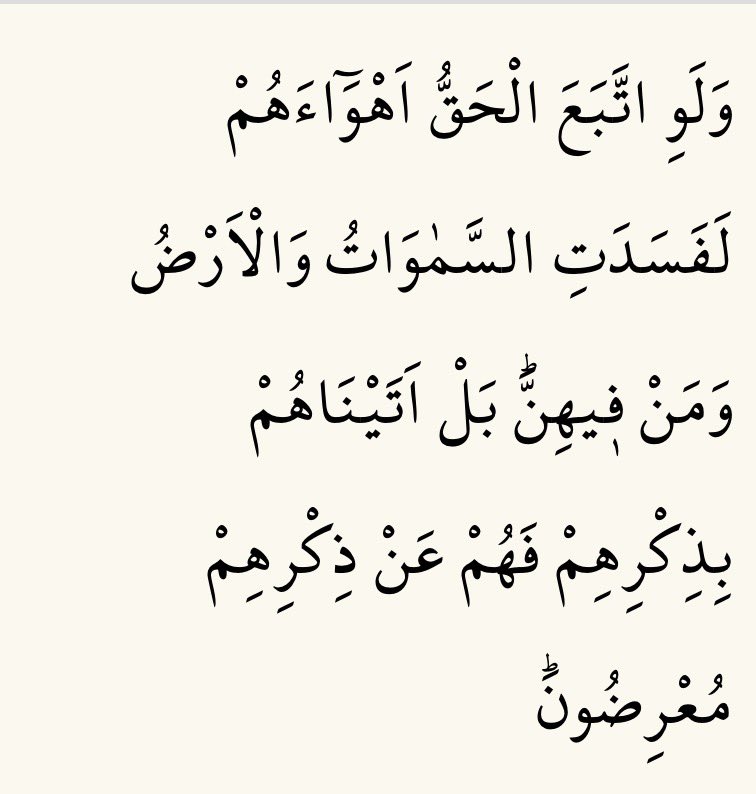 وَلَوِ اتَّبَعَ الْحَقُّ اَهْوَٓاءَهُمْ
لَفَسَدَتِ السَّمٰوَاتُ وَالْاَرْضُ
وَمَنْ ف۪يهِنَّۜ بَلْ اَتَيْنَاهُمْ
بِذِكْرِهِمْ فَهُمْ عَنْ ذِكْرِهِمْ
مُعْرِضُونَۜ